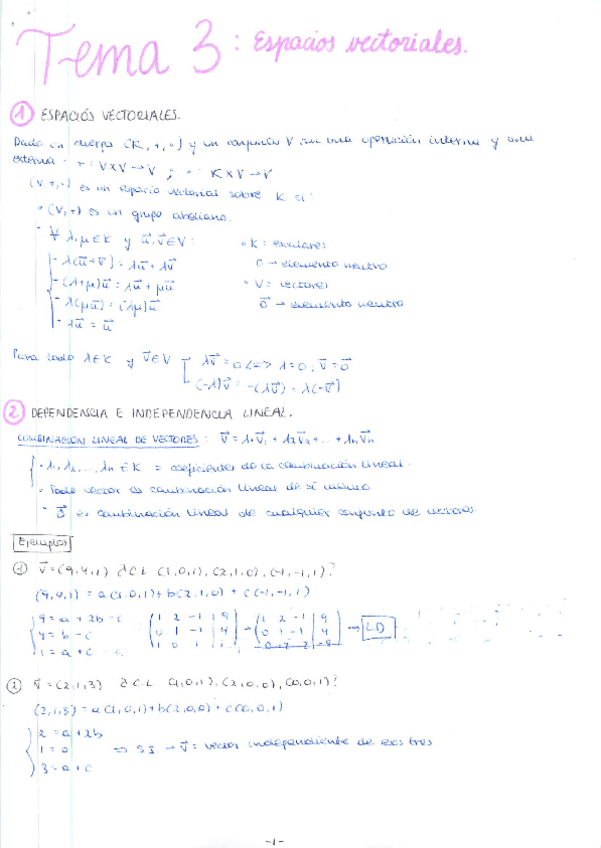 Tema 3: Espacios vectoriales.
1 ESPACIOS VECTORIALES.
Dado un cuerpo (K, +, ·) y un conjunto V con una operación interna y una
externa + : V x V → V ; · : K x V → V
(V, +, ·) es un espacio vectorial sobre K si:
· (V, +) es un grupo abeliano.
· ∀ λ, μ ∈ K y u⃗, v⃗ ∈ V: · K: escalares
- λ(u⃗+v⃗) = λu⃗ + λv⃗ 0 → elemento neutro
- (λ+μ)u⃗ = λu⃗ + μu⃗ · V: vectores
- λ(μu⃗) = (λμ)u⃗ 0⃗ → elemento neutro
- 1u⃗ = u⃗
Para todo λ ∈ K y v⃗ ∈ V λv⃗ = 0 <=> λ = 0, v⃗ = 0⃗
(-λ)v⃗ = -(λv⃗) = λ(-v⃗)
2 DEPENDENCIA E INDEPENDENCIA LINEAL.
COMBINACIÓN LINEAL DE VECTORES: v⃗ = λ₁v⃗₁ + λ₂v⃗₂ + ... + λₙv⃗ₙ
· λ₁, λ₂, ..., λₙ ∈ K = coeficientes de la combinación lineal.
· Todo vector es combinación lineal de sí mismo.
· 0⃗ es combinación lineal de cualquier conjunto de vectores
Ejemplos
1 v⃗ = (9,4,1) ¿C.L (1,0,1), (2,1,0), (-1,-1,1)?
(9,4,1) = a(1,0,1) + b(2,1,0) + c(-1,-1,1)
9 = a + 2b - c (1 2 -1 | 9) (1 2 -1 | 9)
4 = b - c (0 1 -1 | 4) → (0 1 -1 | 4) → LD
1 = a + c (1 0 1 | 1) (0 -2 2 | -8)
2 v⃗ = (2,1,3) ¿C.L (1,0,1), (2,0,0), (0,0,1)?
(2,1,3) = a(1,0,1) + b(2,0,0) + c(0,0,1)
2 = a + 2b
1 = 0 => SI → v⃗: vector independiente de esos tres
3 = a + c
-1-